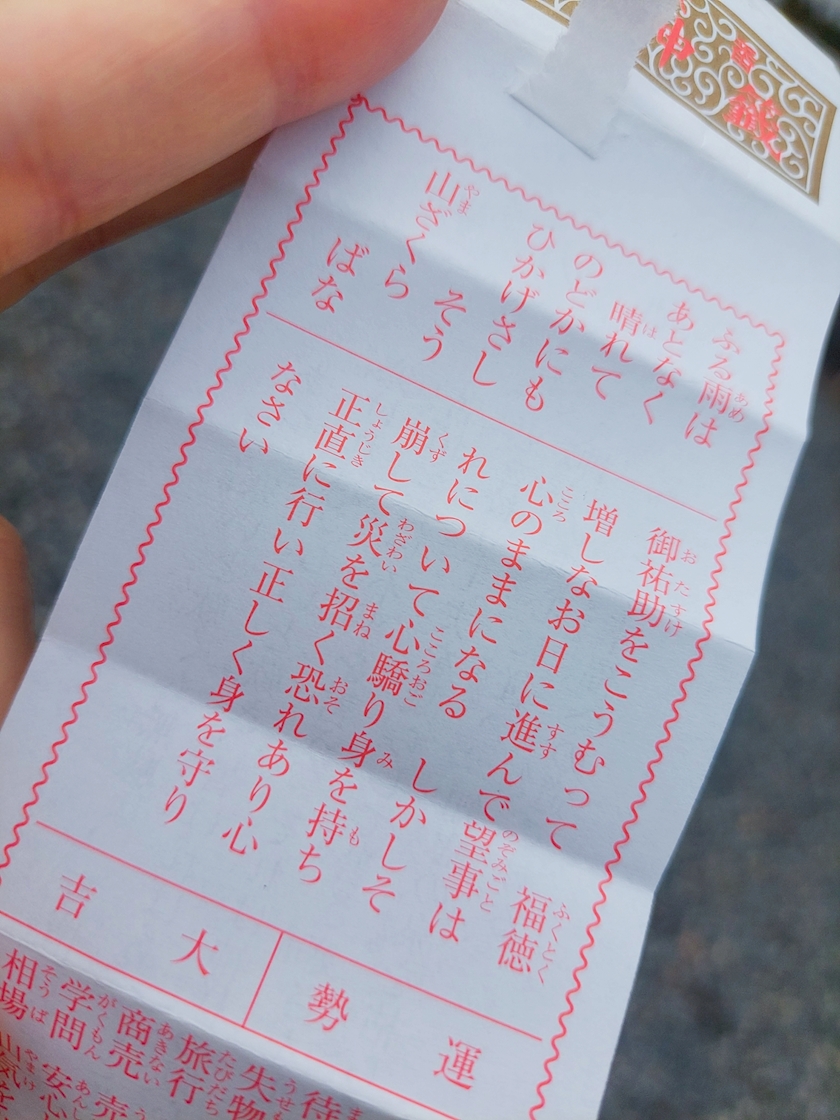 ふる雨は
あとなく
晴れて
のどかにも
ひかげさし
そう
山ざくら
ばな
御祐助をこうむって 福徳
増しなお日に進んで望事は
心のままになる しかしそ
れについて心驕り身を持ち
崩して災を招く恐れあり心
正直に行い正しく身を守り
なさい
運勢
大吉
待
失物
旅行
商売 売
学問 安心
相場